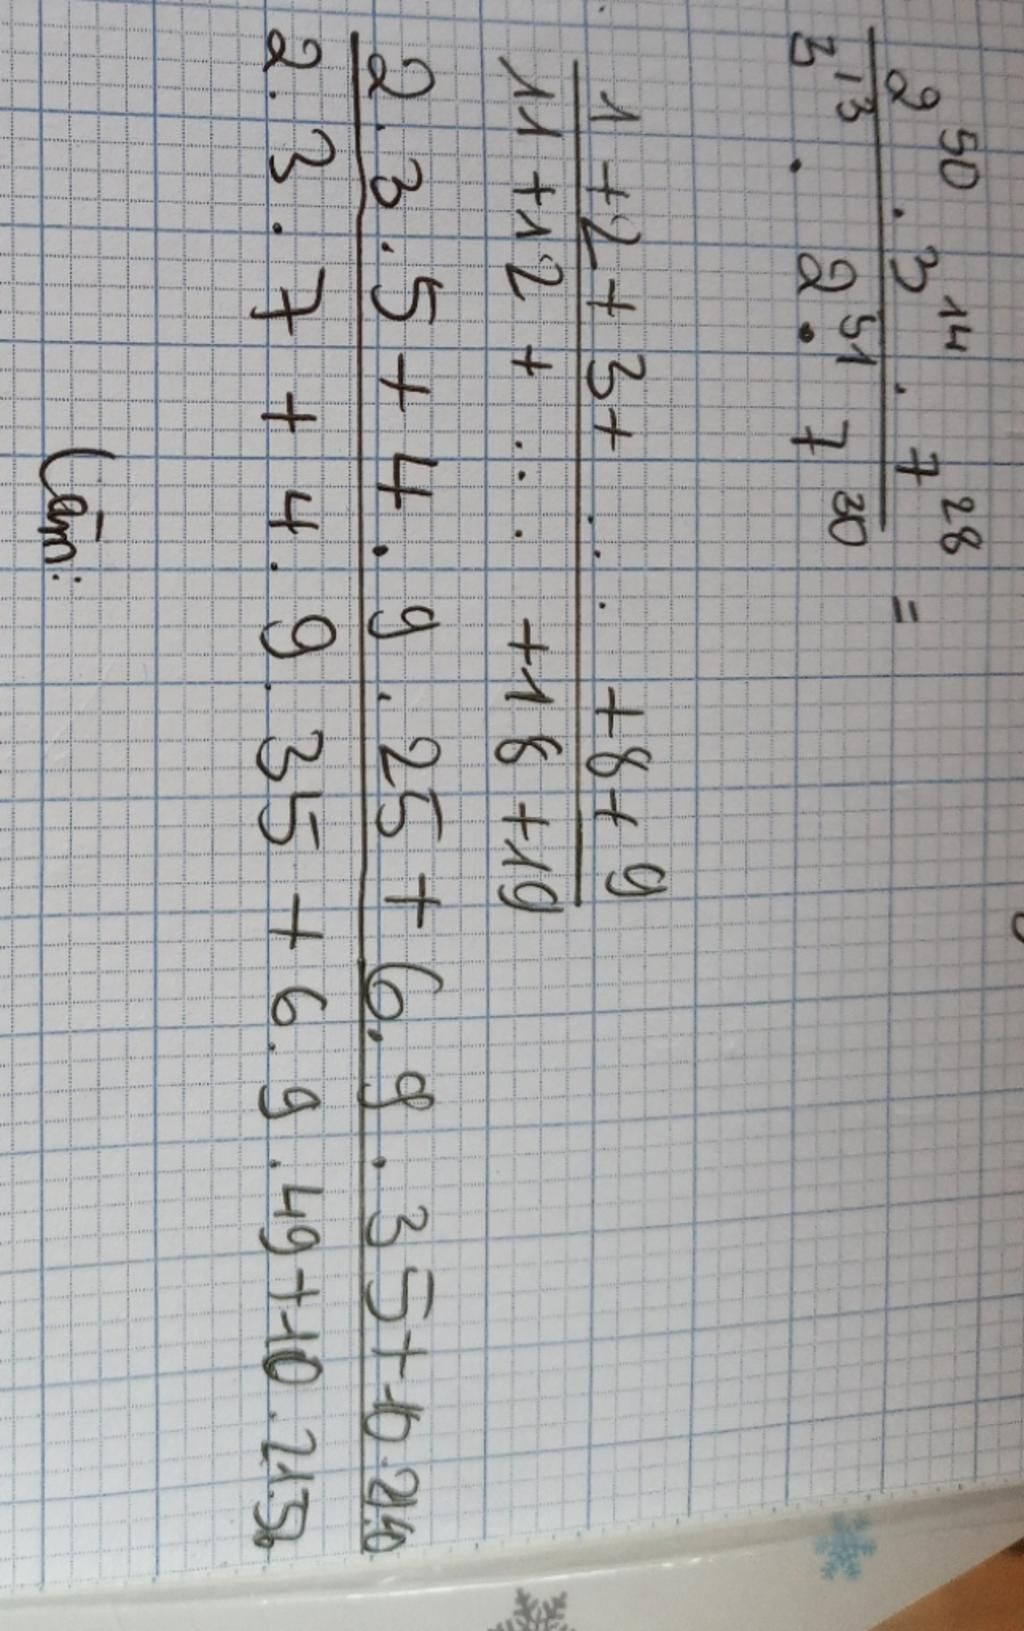 2^50 . 3^14 . 7^28 =
3^13 . 2^51 . 7^30
1 + 2 + 3 + ... + 8 + 9
11 + 12 + .... + 18 + 19
2.3.5 + 4.9.25 + 6.9.35 + 10.21.40
2.3.7 + 4.9.35 + 6.9.49 + 10.21.